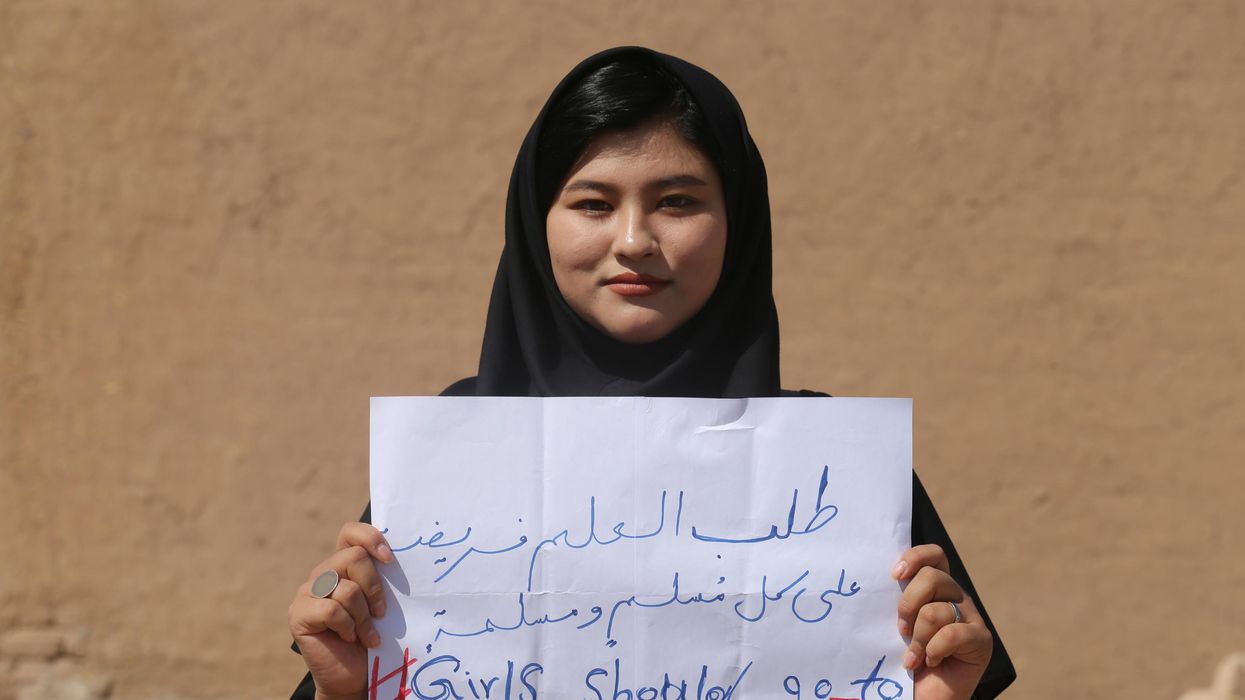 طلب العلم فریضة
علی كل مُسلم و مسلمة
#Girls should go_to